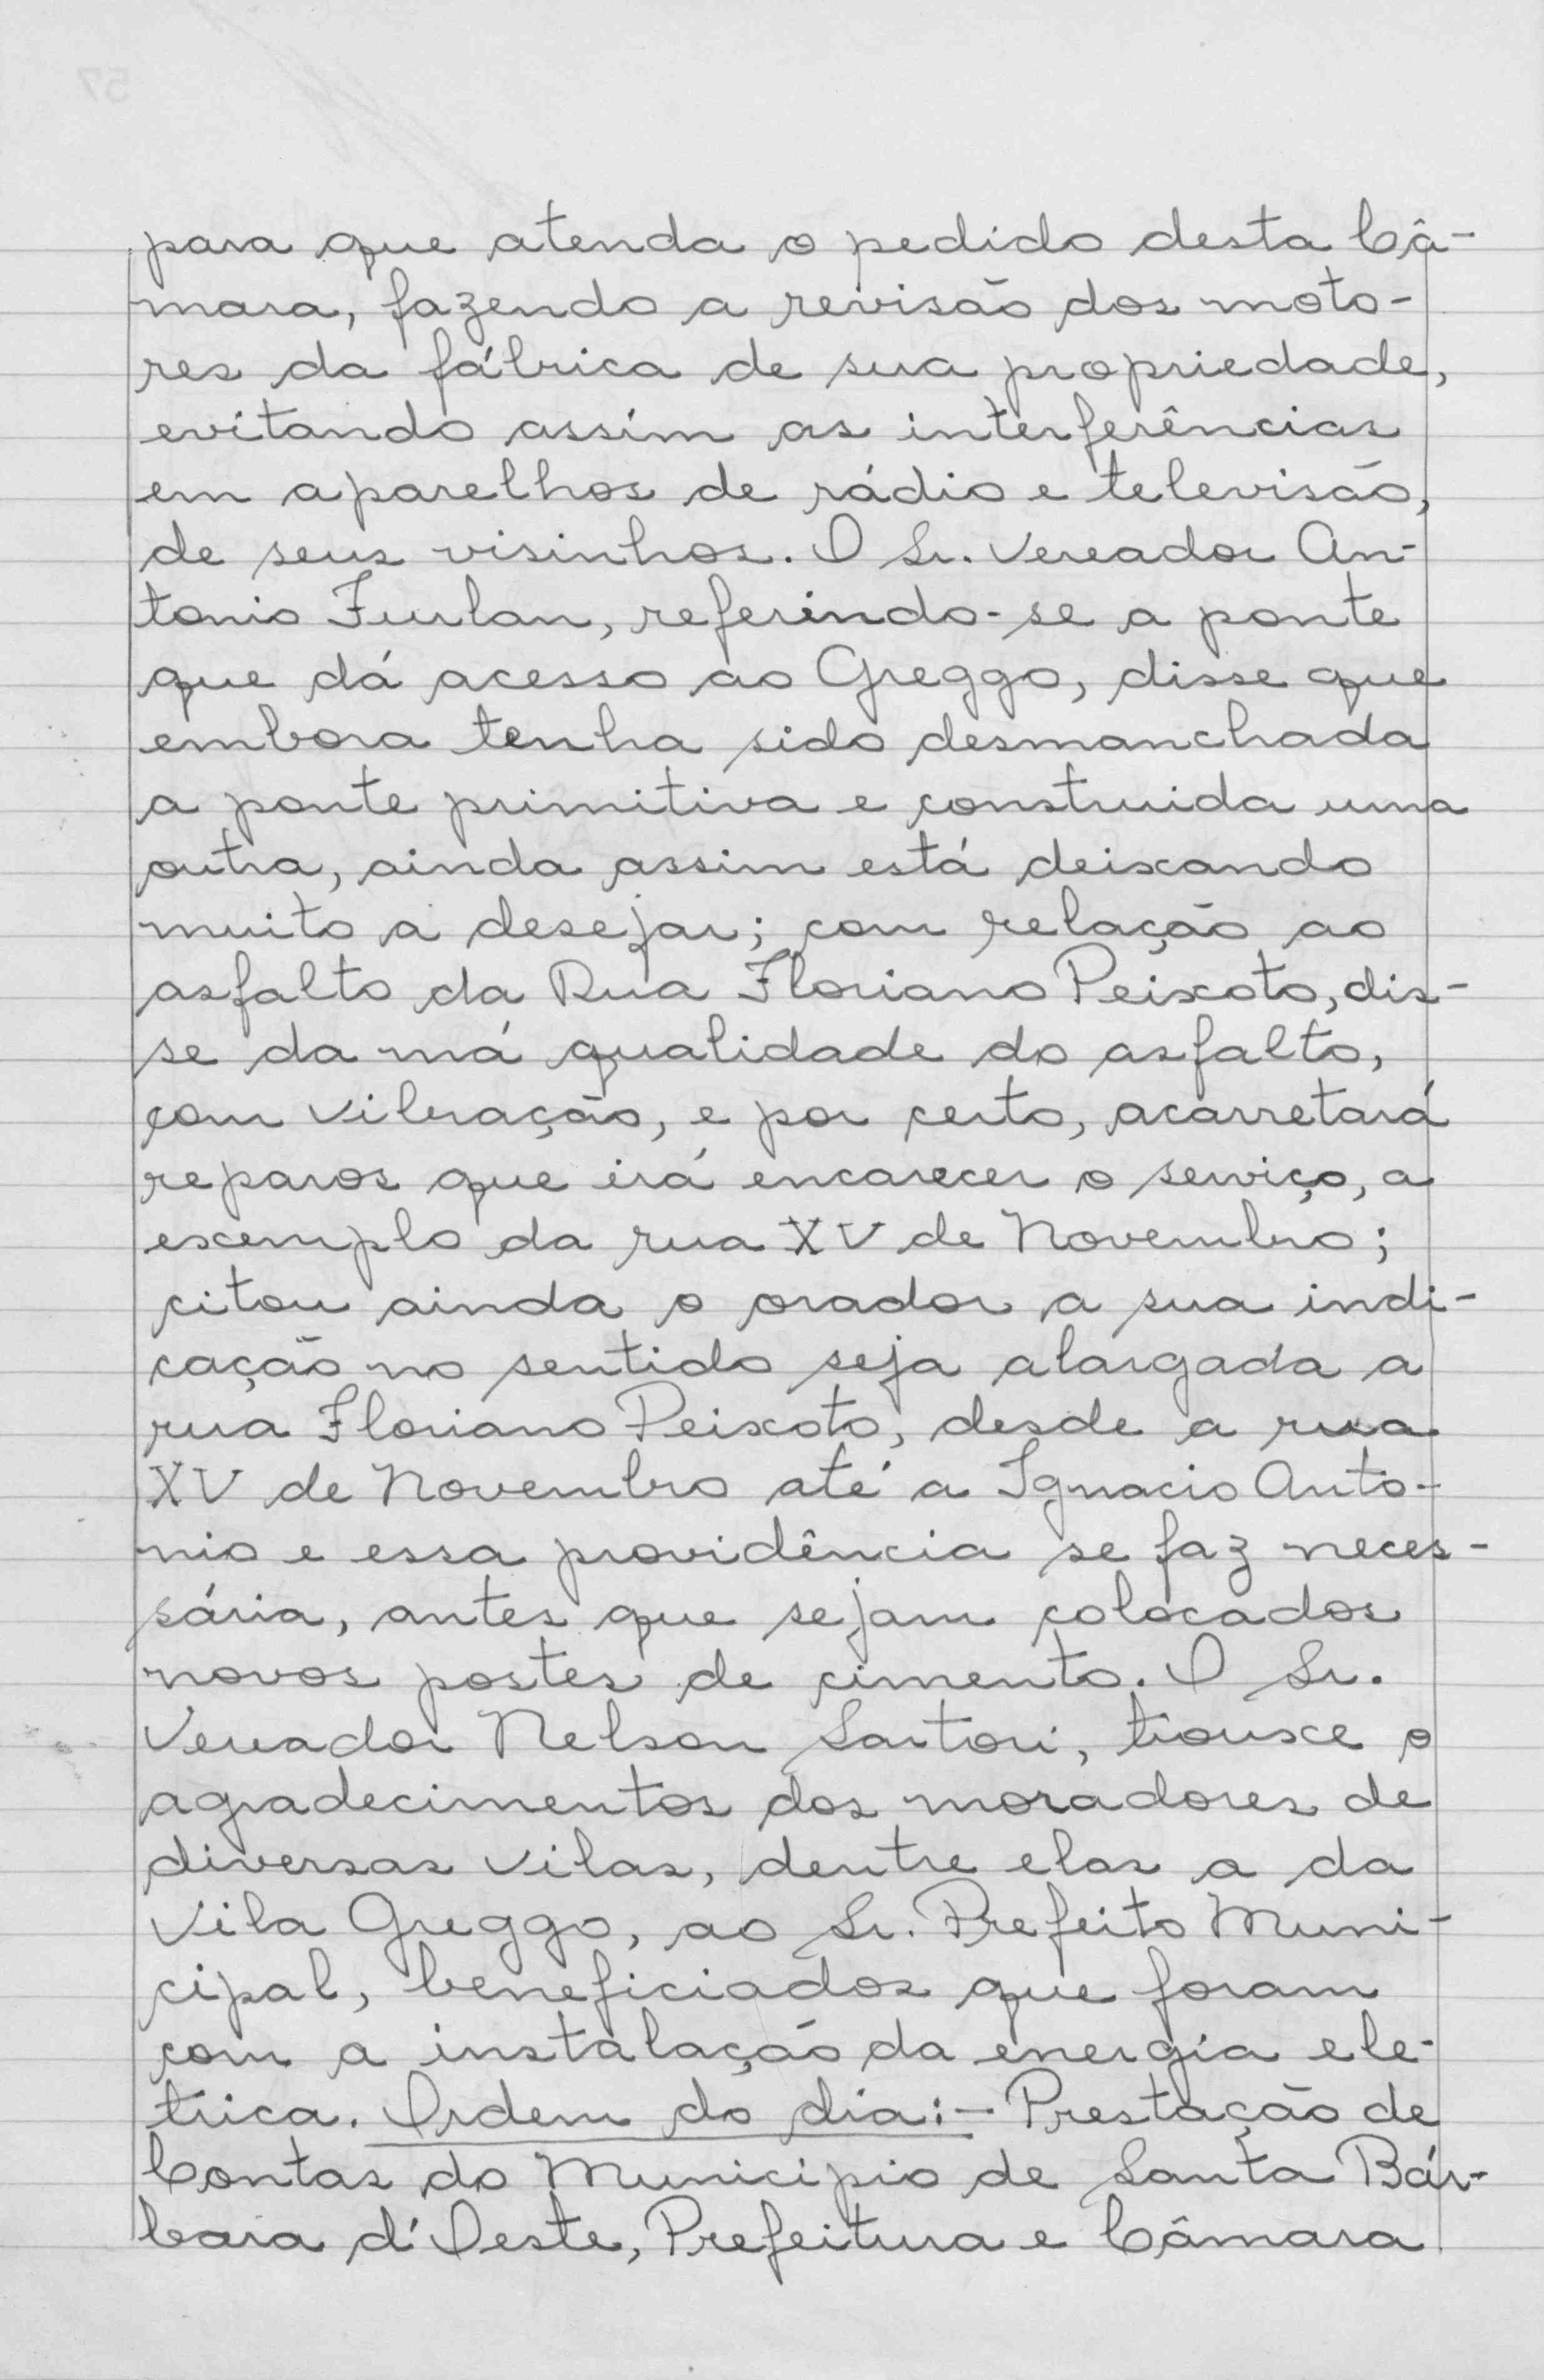 para que atenda o pedido desta Câ-
mara, fazendo a revisão dos moto-
res da fábrica de sua propriedade,
evitando assim as interferências
em aparelhos de rádio e televisão,
de seus visinhos. O Sr. Vereador An-
tonio Furlan, referindo-se a ponte
que dá acesso ao Greggo, disse que
embora tenha sido desmanchada
a ponte primitiva e construida uma
outra, ainda assim está deixando
muito a desejar; com relação ao
asfalto da Rua Floriano Peixoto, dis-
se da má qualidade do asfalto,
com vibração, e por certo, acarretará
reparos que irá encarecer o serviço, a
exemplo da rua XV de Novembro;
citou ainda o orador a sua indi-
cação no sentido seja alargada a
rua Floriano Peixoto, desde a rua
XV de Novembro até a Ignacio Anto-
nio e essa providência se faz neces-
sária, antes que sejam colocados
novos postes de cimento. O Sr.
Vereador Nelson Sartori, trouxe o
agradecimentos dos moradores de
diversas vilas, dentre elas a da
Vila Greggo, ao Sr. Prefeito Muni-
cipal, beneficiados que foram
com a instalação da energia ele-
trica. Ordem do dia:- Prestação de
Contas do Municipio de Santa Bár-
bara d'Oeste, Prefeitura e Câmara